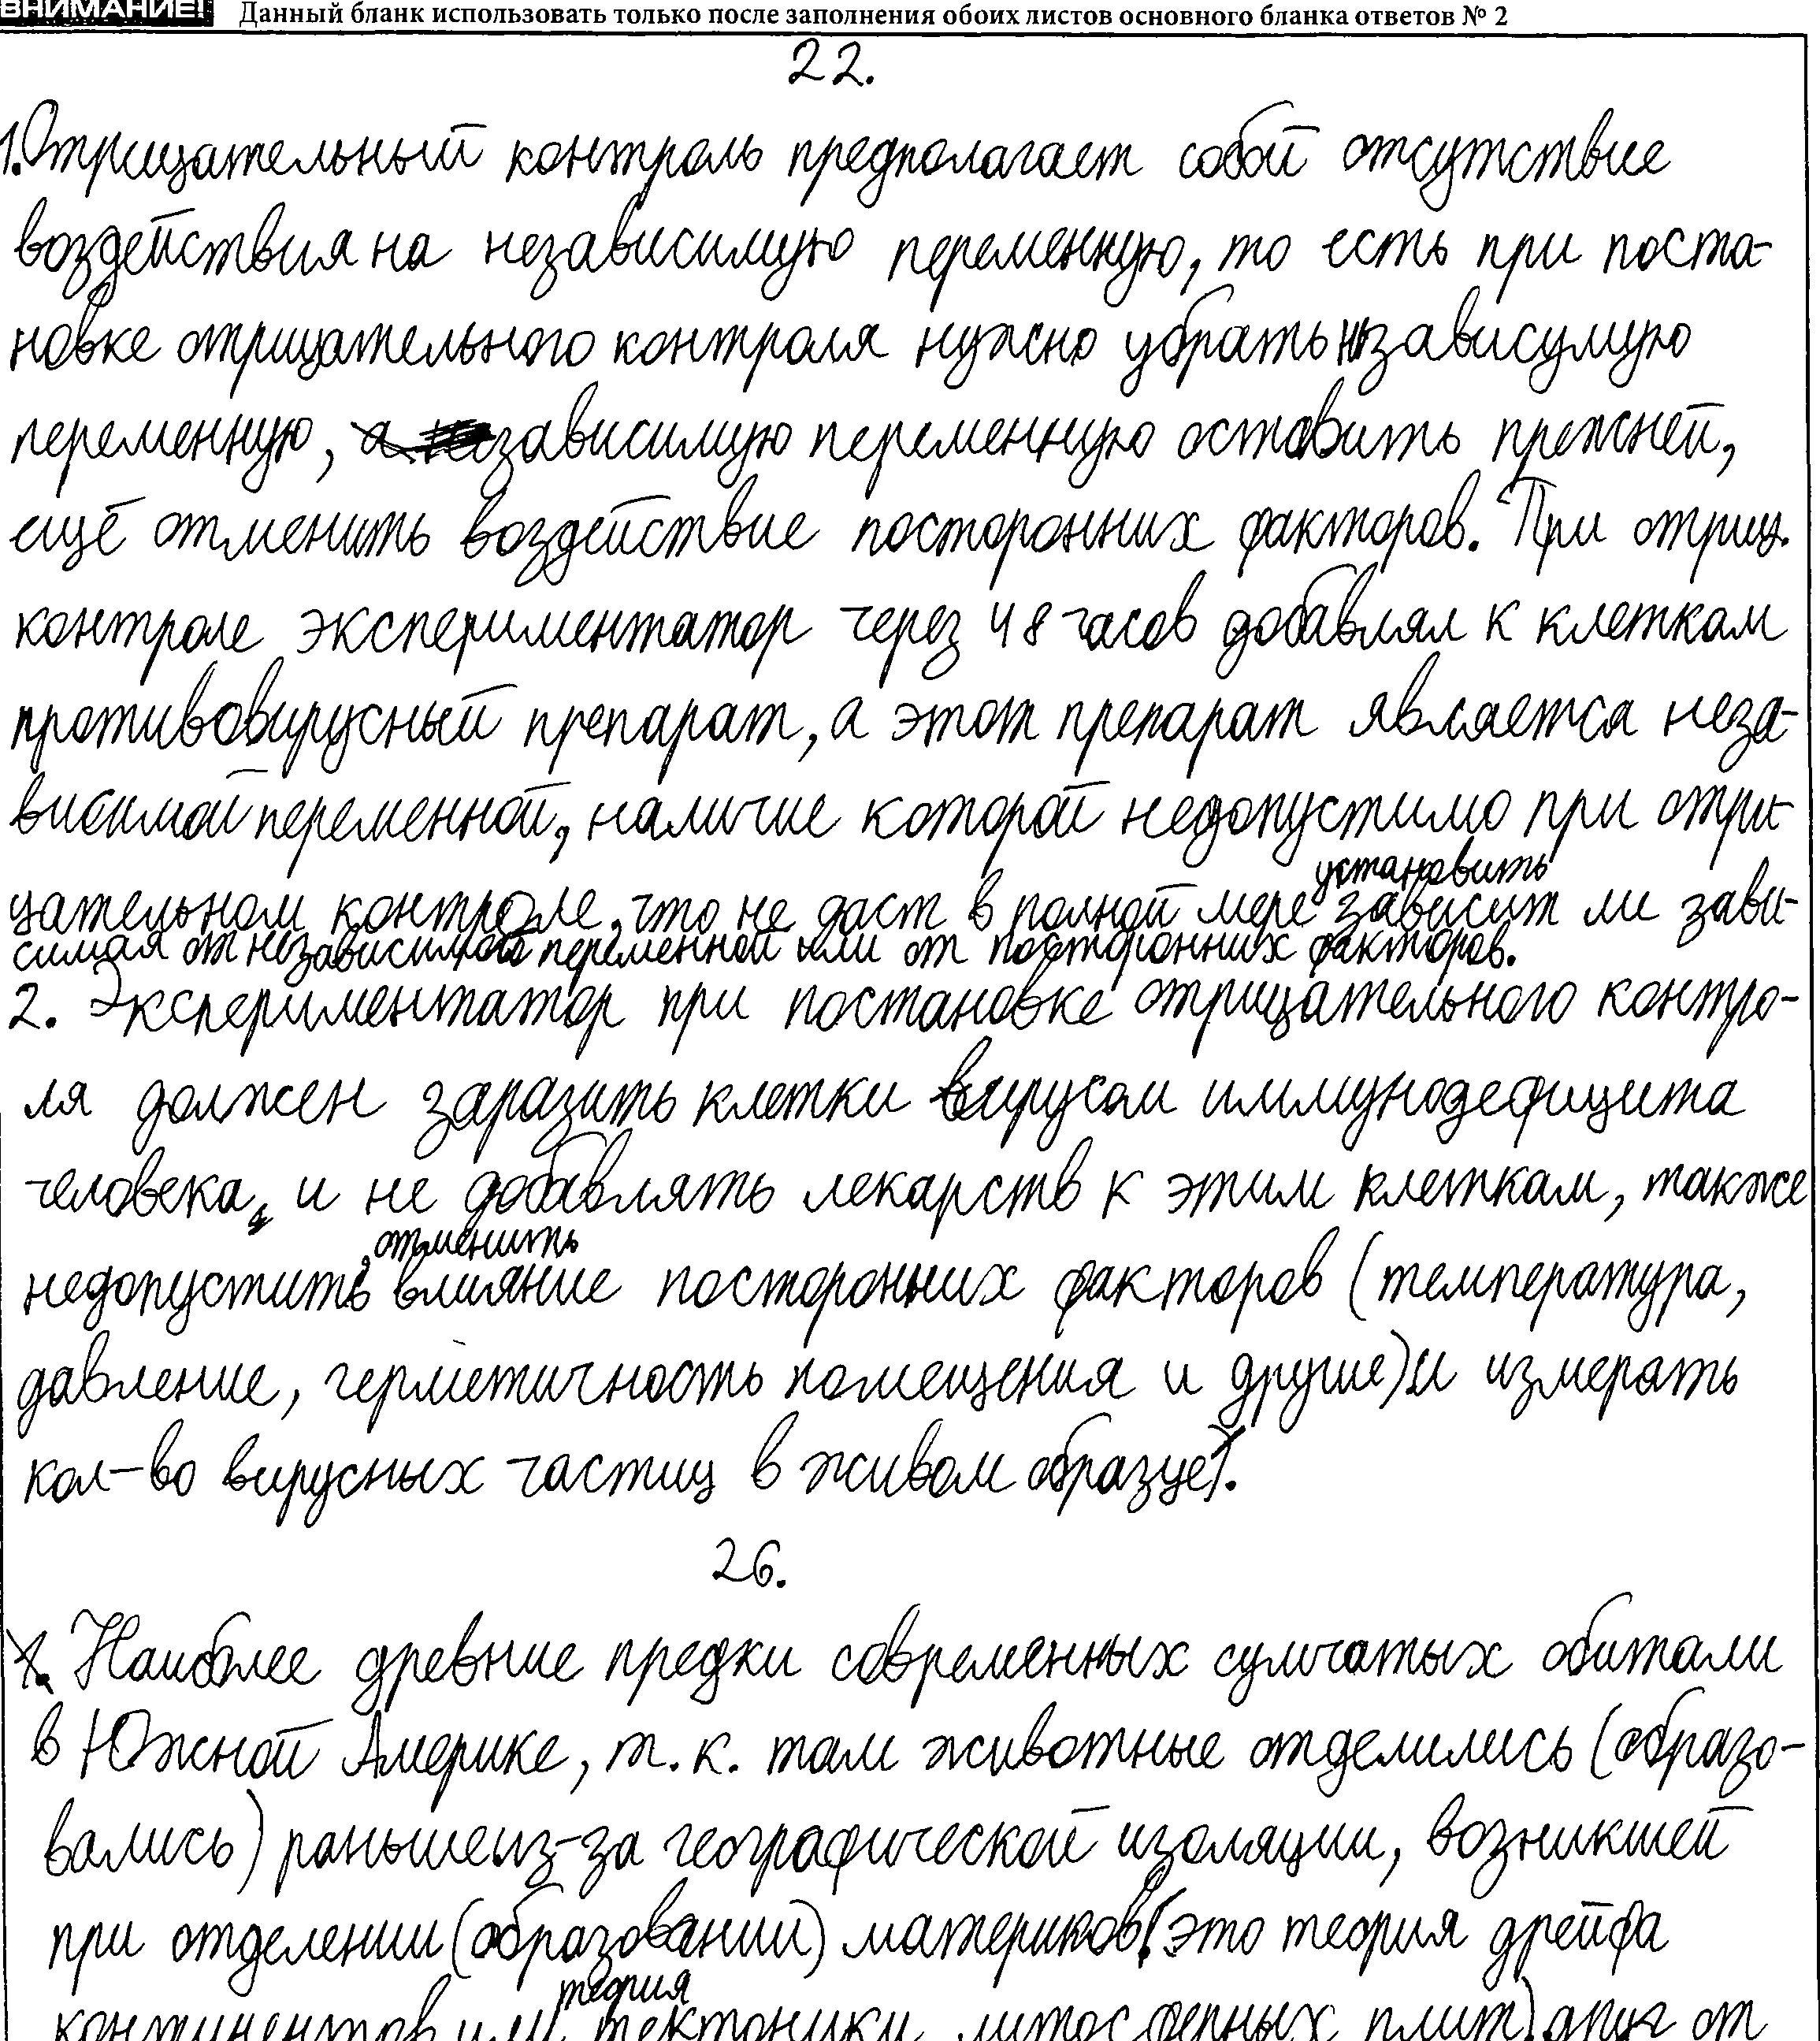 ВНИМАНИЕ! Данный бланк использовать только после заполнения обоих листов основного бланка ответов № 2
22.
1. Отрицательный контроль предполагает собой отсутствие
воздействия на независимую переменную, то есть при поста-
новке отрицательного контроля нужно убрать независумую
переменную, зависимую переменную оставить прежней,
ещё отменить воздействие посторонних факторов. При отриц.
контроле экспериментатор через 48 часов добавлял к клеткам
противовирусный препарат, а этот препарат является неза-
висимой переменной, наличие которой недопустимо при отри-
установить
цательном контроле, что не даст в полной мере зависит ли зави-
симая от независимой переменной или от посторонних факторов.
2. Экспериментатор при постановке отрицательного контро-
ля должен заразить клетки вирусом иммунодефицита
человека, и не добавлять лекарств к этим клеткам, также
, отменить
недопустить влияние посторонних факторов (температура,
давление, герметичность помещения и другие) и измерать
кол-во вирусных частиц в живом образце.
26.
Наиболее древние предки современных сумчатых обитали
в Южной Америке, т. к. там животные отделились (образо-
вались) раньше из-за географической изоляции, возникшей
при отделении (образовании) материков (это теория дрейфа
теория
континентов или тектоники литосферных плит) друг от